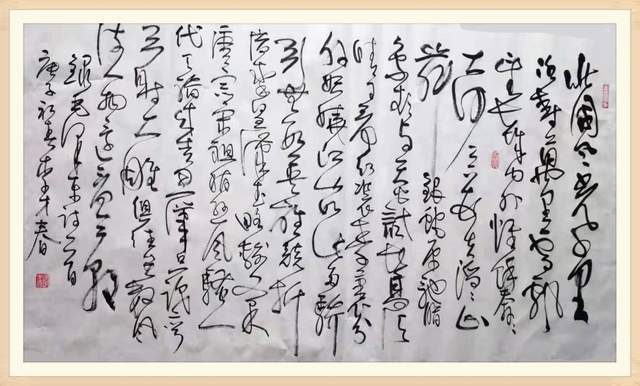 北國风光千里
冰封萬里雪飘
望长城内外惟余莽莽
大河上下顿失滔滔山
舞銀蛇原驰蜡
象欲与天公试比高须
晴日看红装素裹分
外妖娆江山如此多娇
引无数英雄竞折
腰惜秦皇漢武略输文采
唐宗宋祖稍逊风骚一
代天骄成吉思汗只识弯
弓射大雕俱往矣数风
流人物还看今朝
録毛泽东詩一首
庚子初春